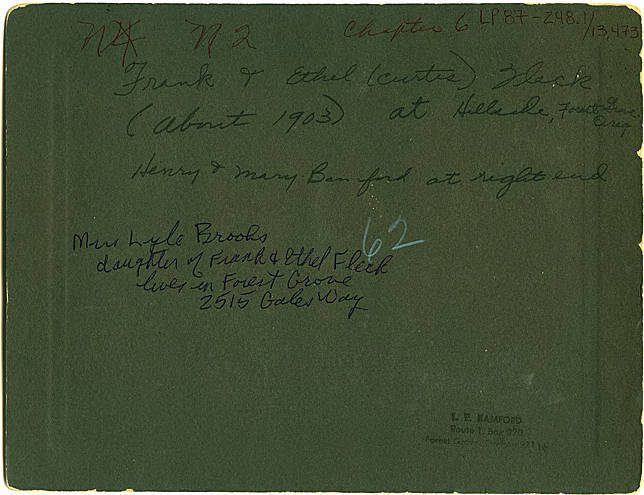 N2 Chapter 6 LP87-248.1/
13,473
Frank & Ethel (Curtis) Fleck
(about 1903) at Hillside, Forest Grove
Oreg
Henry & Mary Bamford at right end
62
Mrs Lyle Brooks
daughter of Frank & Ethel Fleck
lives in Forest Grove
2515 Gales Way
E. BAMFORD
Route 1, Box
Forest